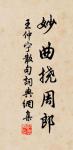 妙曲挠周郎
王仲宁散句词典网集